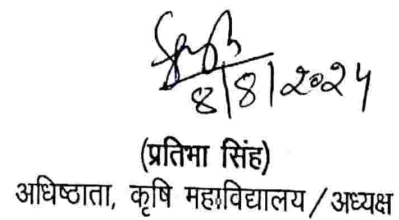 8/8/2024
(प्रतिभा सिंह)
अधिष्ठाता, कृषि महाविद्यालय/अध्यक्ष